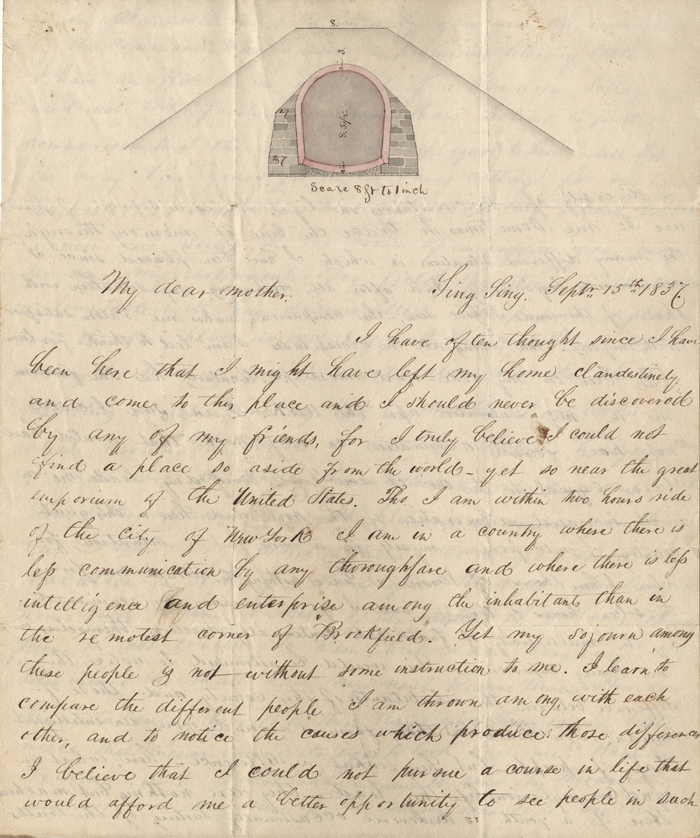 8.
3.
27
8.5 fc
27
Scare 8 ft to 1 inch
My dear mother. Sing Sing. Septr. 15th 1837
I have often thought since I have
been here that I might have left my home clandestinely
and come to this place and I should never be discovered
by any of my friends, for I truly believe I could not
find a place so aside from the world – yet so near the great
emporium of the United States. Tho, I am within two hours ride
of the city of New York I am in a country where there is
less communication by any thoroughfare and where there is less
intelligence and enterprise among the inhabitants than in
the remotest corner of "Brookfield". Yet my sojourn among
these people is not without some instruction to me. I learn to
compare the different people I am thrown among, with each
other, and to notice the causes which produce those differences
I believe that I could not pursue a course in life that
would afford me a better opportunity to see people in such